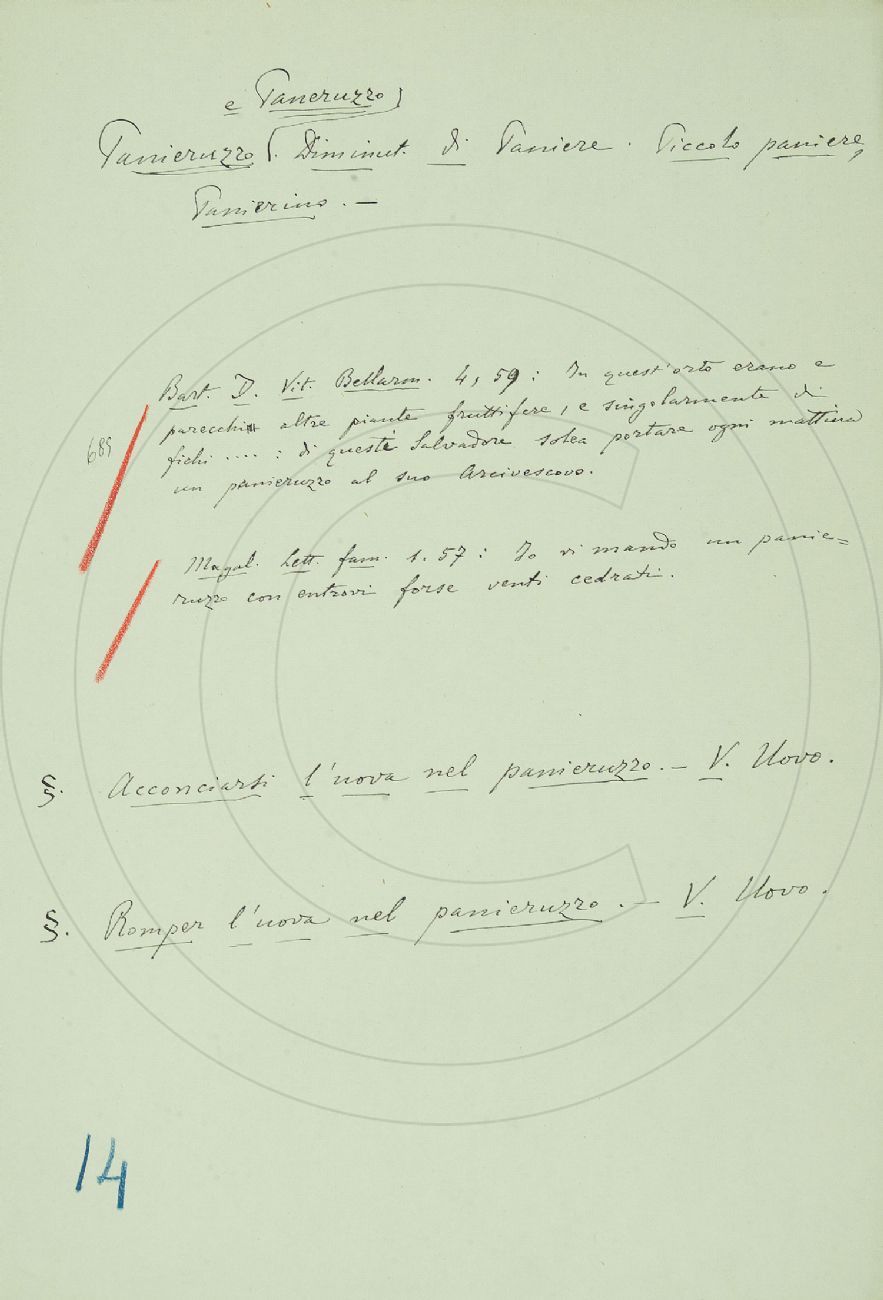 e Paneruzzo
Panieruzzo. Diminut. di Paniere. Piccolo paniere,
Panierino. —
Bart. D. Vit. Bellarm. 4, 59: In quest'orto erano e
parecchi altre piante fruttifere, e singolarmente di
fichi ....: di queste Salvadore solea portare ogni mattina
un panieruzzo al suo Arcivescovo.
689
Magal. Lett. fam. 1. 57: Io vi mando un panie=
ruzzo con entrovi forse venti cedrati.
§. Acconciarsi l'uova nel panieruzzo. — V. Uovo.
§. Romper l'uova nel panieruzzo. — V. Uovo.
14